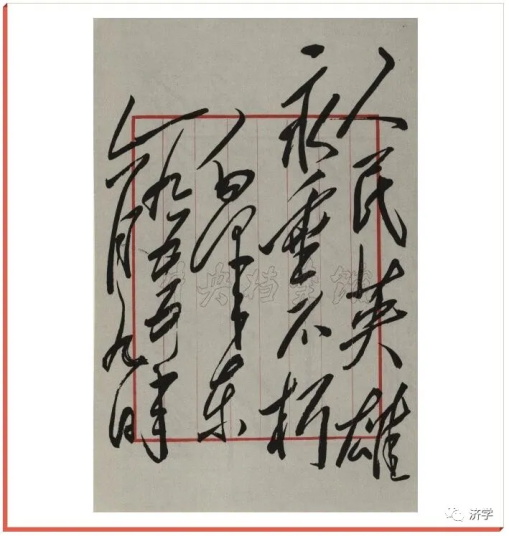 人民英雄
永垂不朽
毛泽东
一九五五年
六月九日
中央档案馆
济学